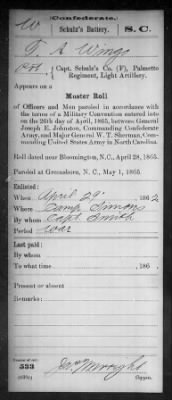 (Confederate.)
W Schulz's Battery. S. C.
T. A. Wingo
Capt. Schulz's Co. (F), Palmetto
Regiment, Light Artillery.
Appears on a
Muster Roll
of Officers and Men paroled in accordance
with the terms of a Military Convention entered into
on the 26th day of April, 1865, between General
Joseph E. Johnston, Commanding Confederate
Army, and Major General W. T. Sherman, Com-
manding United States Army in North Carolina.
Roll dated near Bloomington, N. C., April 28, 1865.
Paroled at Greensboro, N. C., May 1, 1865.
Enlisted:
When April 29, 1862
Where Camp Simons
By whom Capt. Smith
Period War
Last paid:
By whom
To what time , 186 .
Present or absent
Remarks:
533
Copyist.